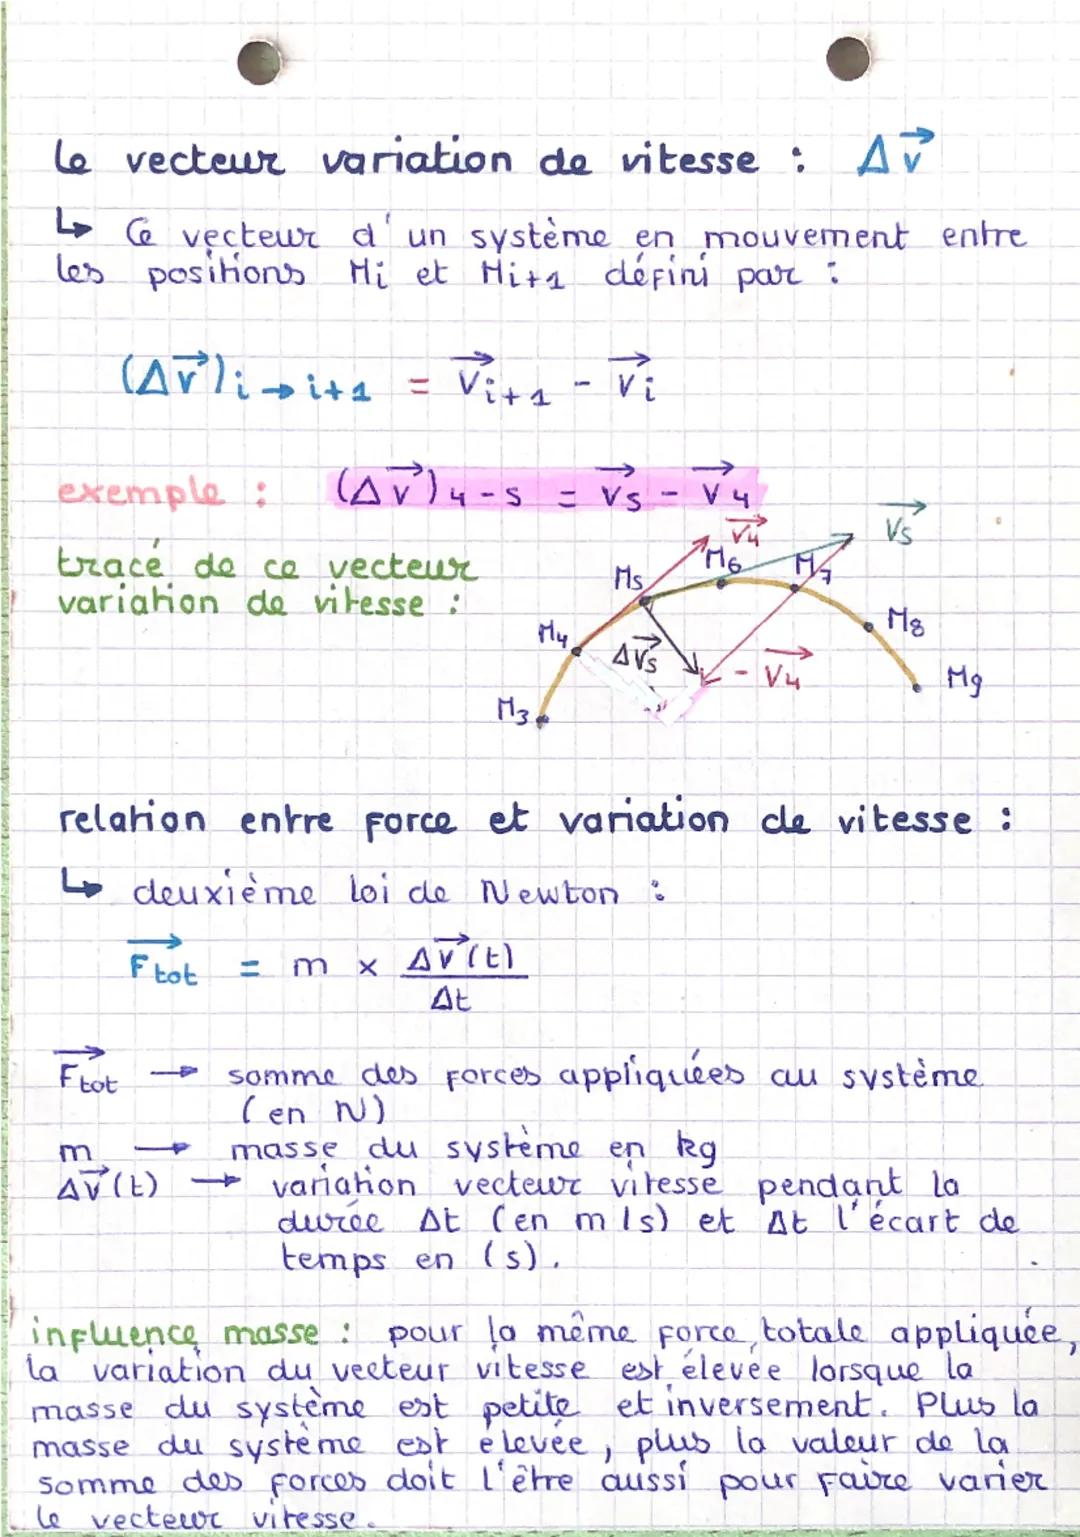 le vecteur variation de vitesse : Δv⃗
↳ Ce vecteur d'un système en mouvement entre
les positions Mi et Mi+1 défini par :
(Δv⃗)i→i+1 = v⃗i+1 - v⃗i
exemple : (Δv⃗)4-5 = v⃗5 - v⃗4
tracé de ce vecteur
variation de vitesse :
v⃗4
v⃗5
M6
M7
M5
M8
M4
Δv⃗5
- v⃗4
M9
M3
relation entre force et variation de vitesse :
↳ deuxième loi de Newton :
F⃗tot = m × Δv⃗(t)
Δt
F⃗tot → somme des forces appliquées au système
(en N)
m → masse du système en kg
Δv⃗(t) → variation vecteur vitesse pendant la
durée Δt (en m/s) et Δt l'écart de
temps en (s).
influence masse : pour la même force totale appliquée,
la variation du vecteur vitesse est élevée lorsque la
masse du système est petite et inversement. Plus la
masse du système est élevée, plus la valeur de la
somme des forces doit l'être aussi pour faire varier
le vecteur vitesse.